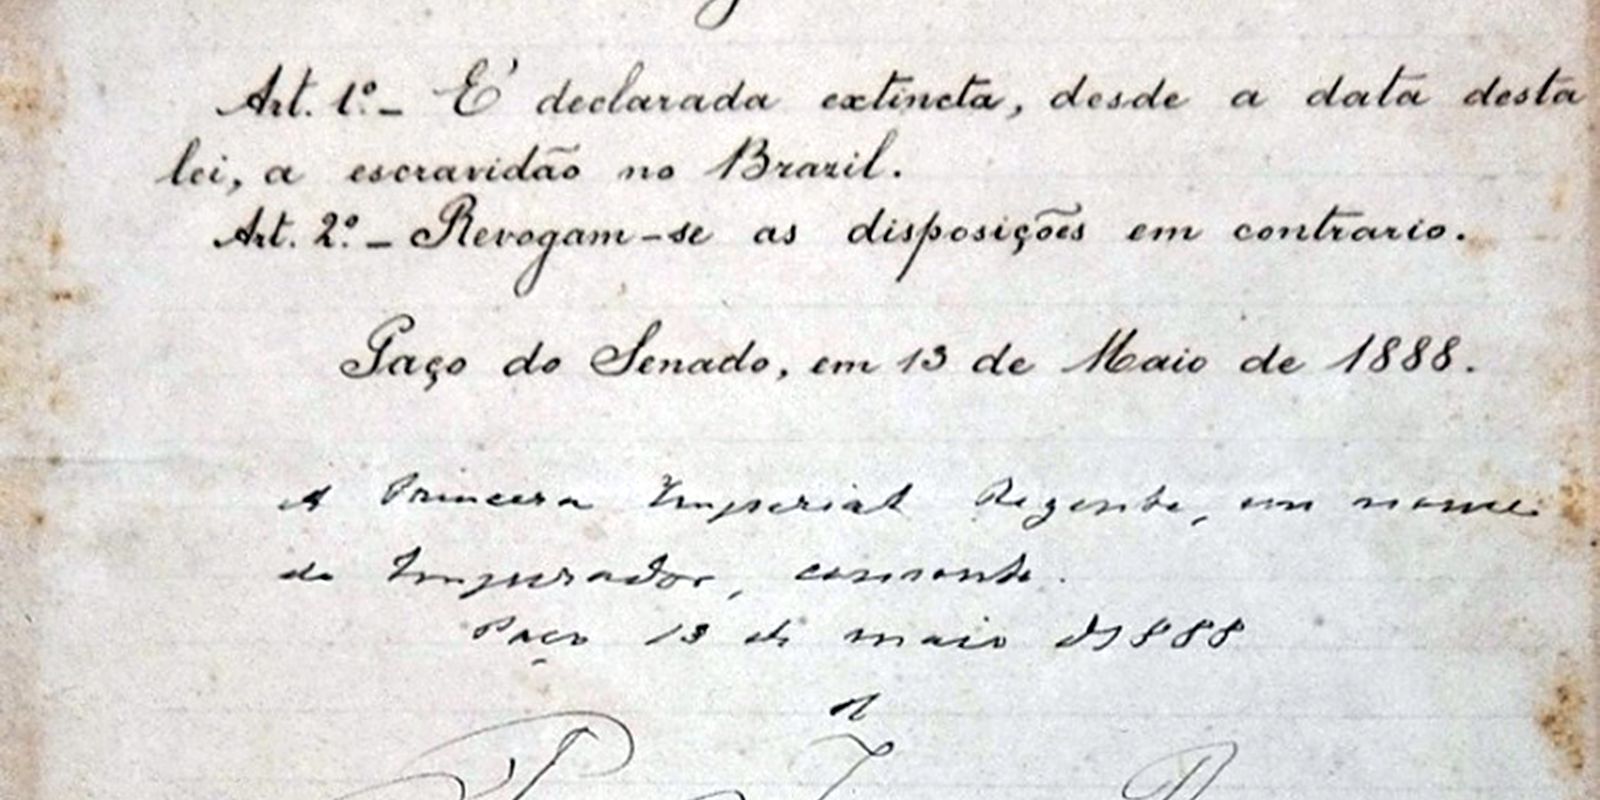 Art. 1º - É declarada extincta, desde a data desta
lei, a escravidão no Brazil.
Art. 2º - Revogam-se as disposições em contrario.
Paço do Senado, em 13 de Maio de 1888.
A Princeza Imperial Regente, em nome
do Imperador, consente.
Paço 13 de maio de 1888